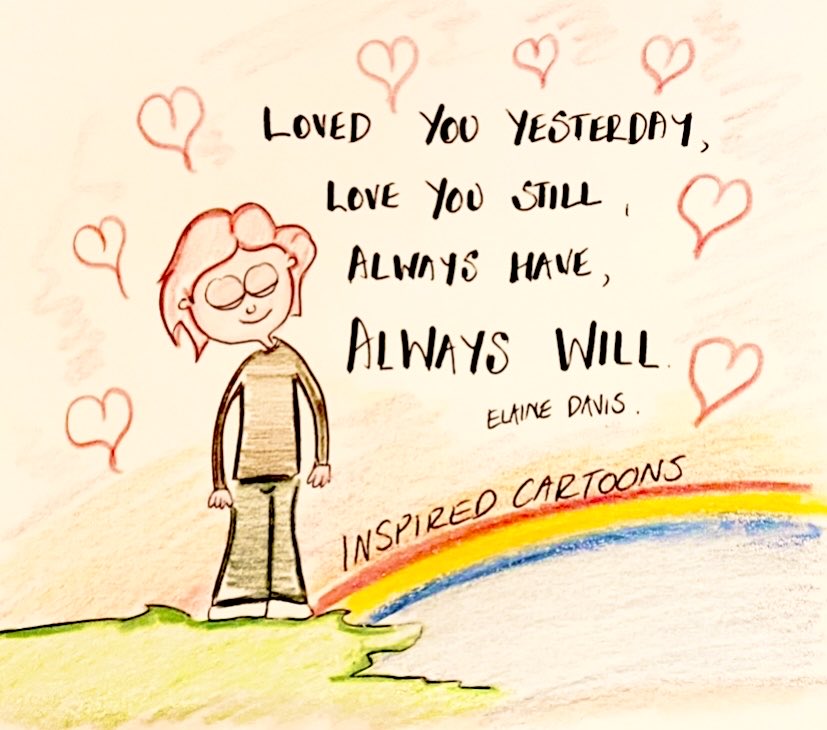 LOVED YOU YESTERDAY,
LOVE YOU STILL,
ALWAYS HAVE,
ALWAYS WILL.
ELAINE DAVIS.
INSPIRED CARTOONS